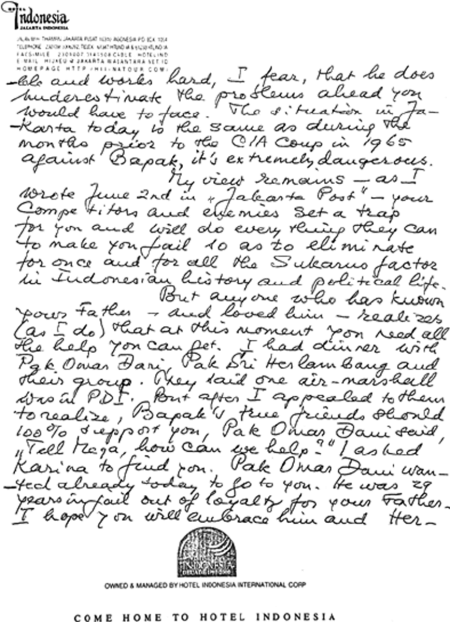 Indonesia
JAKARTA INDONESIA
ble and works hard, I fear, that he does
underestimate the problems ahead you
would have to face. The situation in Ja-
karta today is the same as during the
months prior to the CIA Coup in 1965
against Bapak, it's extremely dangerous.
My view remains – as I
wrote June 2nd in „Jakarta Post" – your
Competitors and enemies set a trap
for you and will do everything they can
to make you fail so as to eliminate
for once and for all the Sukarno factor
in Indonesian history and political life.
But anyone who has known
your Father – and loved him – realizes
(as I do) that at this moment you need all
the help you can get. I had dinner with
Pak Omar Dani, Pak Sri Herlambang and
their group. They said one air-marshall
was in PDI. But after I appealed to them
to realize, Bapak's true friends should
100% support you, Pak Omar Dani said,
„Tell Mega, how can we help?" I asked
Karina to find you. Pak Omar Dani wan-
ted already today to go to you. He was 29
years in jail out of loyalty for your Father –
I hope you will embrace him and Her-
INDONESIA
OWNED & MANAGED BY HOTEL INDONESIA INTERNATIONAL CORP
COME HOME TO HOTEL INDONESIA